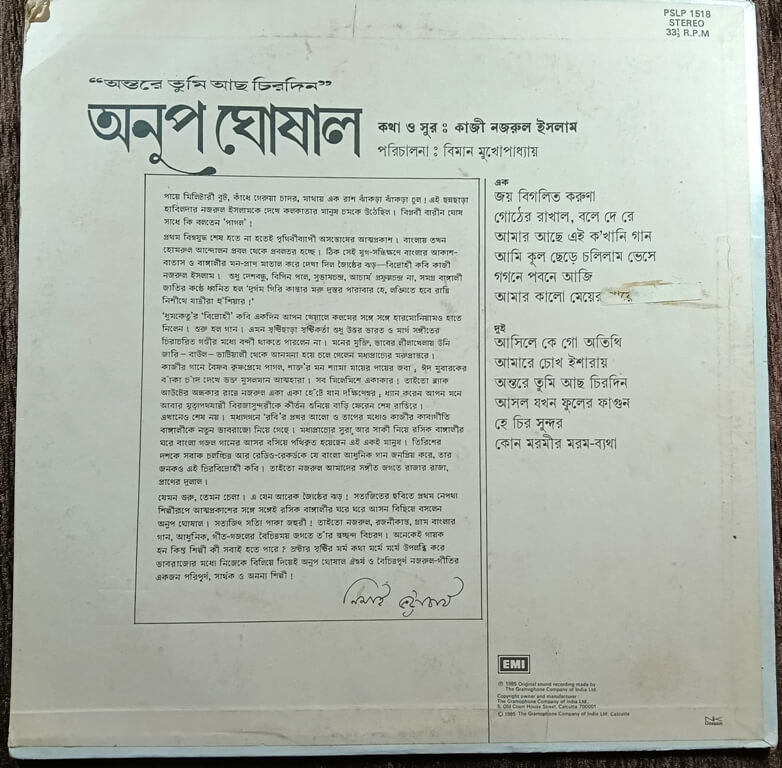 PSLP 1518
STEREO
33⅓ R.P.M
“অন্তরে তুমি আছ চিরদিন”
অনুপ ঘোষাল
কথা ও সুর : কাজী নজরুল ইসলাম
পরিচালনা : বিমান মুখোপাধ্যায়
পায়ে মিলিটারী বুট, কাঁধে গেরুয়া চাদর, মাথায় এক রাশ ঝাঁকড়া ঝাঁকড়া চুল ! এই ছন্নছাড়া
হাবিলদার নজরুল ইসলামকে দেখে কলকাতার মানুষ চমকে উঠেছিল। বিপ্লবী বারীন ঘোষ
সাধে কি বলতেন ‘পাগল’ !
প্রথম বিশ্বযুদ্ধ শেষ হতে না হতেই পৃথিবীব্যাপী অসন্তোষের আত্মপ্রকাশ। বাংলায় তখন
হোমরুল আন্দোলন প্রবল থেকে প্রবলতর হচ্ছে। ঠিক সেই যুগ-সন্ধিক্ষণে বাংলার আকাশ-
বাতাস ও বাঙ্গালীর মন-প্রাণ মাতাল করে দেখা দিল জ্যৈষ্ঠের ঝড়—বিদ্রোহী কবি কাজী
নজরুল ইসলাম। শুধু দেশবন্ধু, বিপিন পাল, সুভাষচন্দ্র, আচার্য প্রফুল্লচন্দ্র না, সমগ্র বাঙ্গালী
জাতির কণ্ঠে ধ্বনিত হল ‘দুর্গম গিরি কান্তার মরু দুস্তর পারাবার হে, লঙ্ঘিতে হবে রাত্রি
নিশীথে যাত্রীরা হুঁশিয়ার।’
‘ধূমকেতু’র ‘বিদ্রোহী’ কবি একদিন আপন খেয়ালে কলমের সঙ্গে সঙ্গে হারমোনিয়ামও হাতে
নিলেন। শুরু হল গান। এমন সৃষ্টিছাড়া সৃষ্টিকর্তা শুধু উত্তর ভারত ও মার্গ সঙ্গীতের
চিরাচরিত গণ্ডীর মধ্যে বন্দী থাকতে পারলেন না। মনের মুক্তি, ভাবের লীলাখেলায় উনি
জারি – বাউল – ভাটিয়ালী থেকে আনমনা হয়ে চলে গেলেন মধ্যপ্রাচ্যের মরুপ্রান্তরে।
কাজীর গানে বৈষ্ণব কৃষ্ণপ্রেমে পাগল, শাক্ত’র মন শ্যামা মায়ের পায়ের জবা, ঈদ মুবারকের
বাঁকা চাঁদ দেখে ভক্ত মুসলমান আত্মহারা। সব মিলেমিশে একাকার। তাইতো ব্ল্যাক
আউটের অন্ধকার রাতে নজরুল একা একা হেঁটে যান দক্ষিণেশ্বর, ধ্যান করেন আপন মনে
আবার মৃত্যুপথযাত্রী বিরজাসুন্দরীকে কীর্তন শুনিয়ে বাড়ি ফেরেন শেষ রাত্তিরে।
এখানেও শেষ নয়। মধ্যগগনে ‘রবি’র প্রখর আলো ও তাপের মধ্যেও কাজীর কাব্যগীতি
বাঙ্গালীকে নতুন ভাবরাজ্যে নিয়ে গেছে। মধ্যপ্রাচ্যের সুরা আর সাকী নিয়ে রসিক বাঙ্গালীর
ঘরে বাংলা গজল গানের আসর বসিয়ে পথিকৃত হয়েছেন এই একই মানুষ। তিরিশের
দশকে সবাক চলচ্চিত্র আর রেডিও-রেকর্ডকে যে বাংলা আধুনিক গান জনপ্রিয় করে, তার
জনকও এই চিরবিদ্রোহী কবি। তাইতো নজরুল আমাদের সঙ্গীত জগতে রাজার রাজা,
প্রাণের দুলাল।
যেমন গুরু, তেমন চেলা। এ যেন আরেক জ্যৈষ্ঠের ঝড় ! সত্যজিতের ছবিতে প্রথম নেপথ্য
শিল্পীরূপে আত্মপ্রকাশের সঙ্গে সঙ্গেই রসিক বাঙ্গালীর ঘরে ঘরে আসন বিছিয়ে বসলেন
অনুপ ঘোষাল। সত্যজিৎ সত্যি পাকা জহুরী ! তাইতো নজরুল, রজনীকান্ত, গ্রাম বাংলার
গান, আধুনিক, গীত-গজলের বৈচিত্রময় জগতে তাঁর স্বচ্ছন্দ বিচরণ। অনেকেই গায়ক
হন কিন্তু শিল্পী কী সবাই হতে পারে ? স্রষ্টার সৃষ্টির মর্ম কথা মর্মে মর্মে উপলব্ধি করে
ভাবরাজ্যের মধ্যে নিজেকে বিলিয়ে দিয়েই অনুপ ঘোষাল ঐশ্বর্য ও বৈচিত্রপূর্ণ নজরুল-গীতির
একজন পরিপূর্ণ, সার্থক ও অনন্য শিল্পী !
নিমাই ভট্টাচার্য
এক
জয় বিগলিত করুণা
গোঠের রাখাল, বলে দে রে
আমার আছে এই ক’খানি গান
আমি কূল ছেড়ে চলিলাম ভেসে
গগনে পবনে আজি
আমার কালো মেয়ের
দুই
আসিলে কে গো অতিথি
আমারে চোখ ইশারায়
অন্তরে তুমি আছ চিরদিন
আসল যখন ফুলের ফাগুন
হে চির সুন্দর
কোন মরমীর মরম-ব্যথা
EMI
℗ 1985 Original sound recording made by
The Gramophone Company of India Ltd.
Copyright owner and manufacturer :
The Gramophone Company of India Ltd.
5, Old Court House Street, Calcutta 700001
© 1985 The Gramophone Company of India Ltd., Calcutta